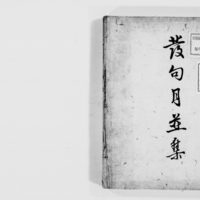 發句月並集